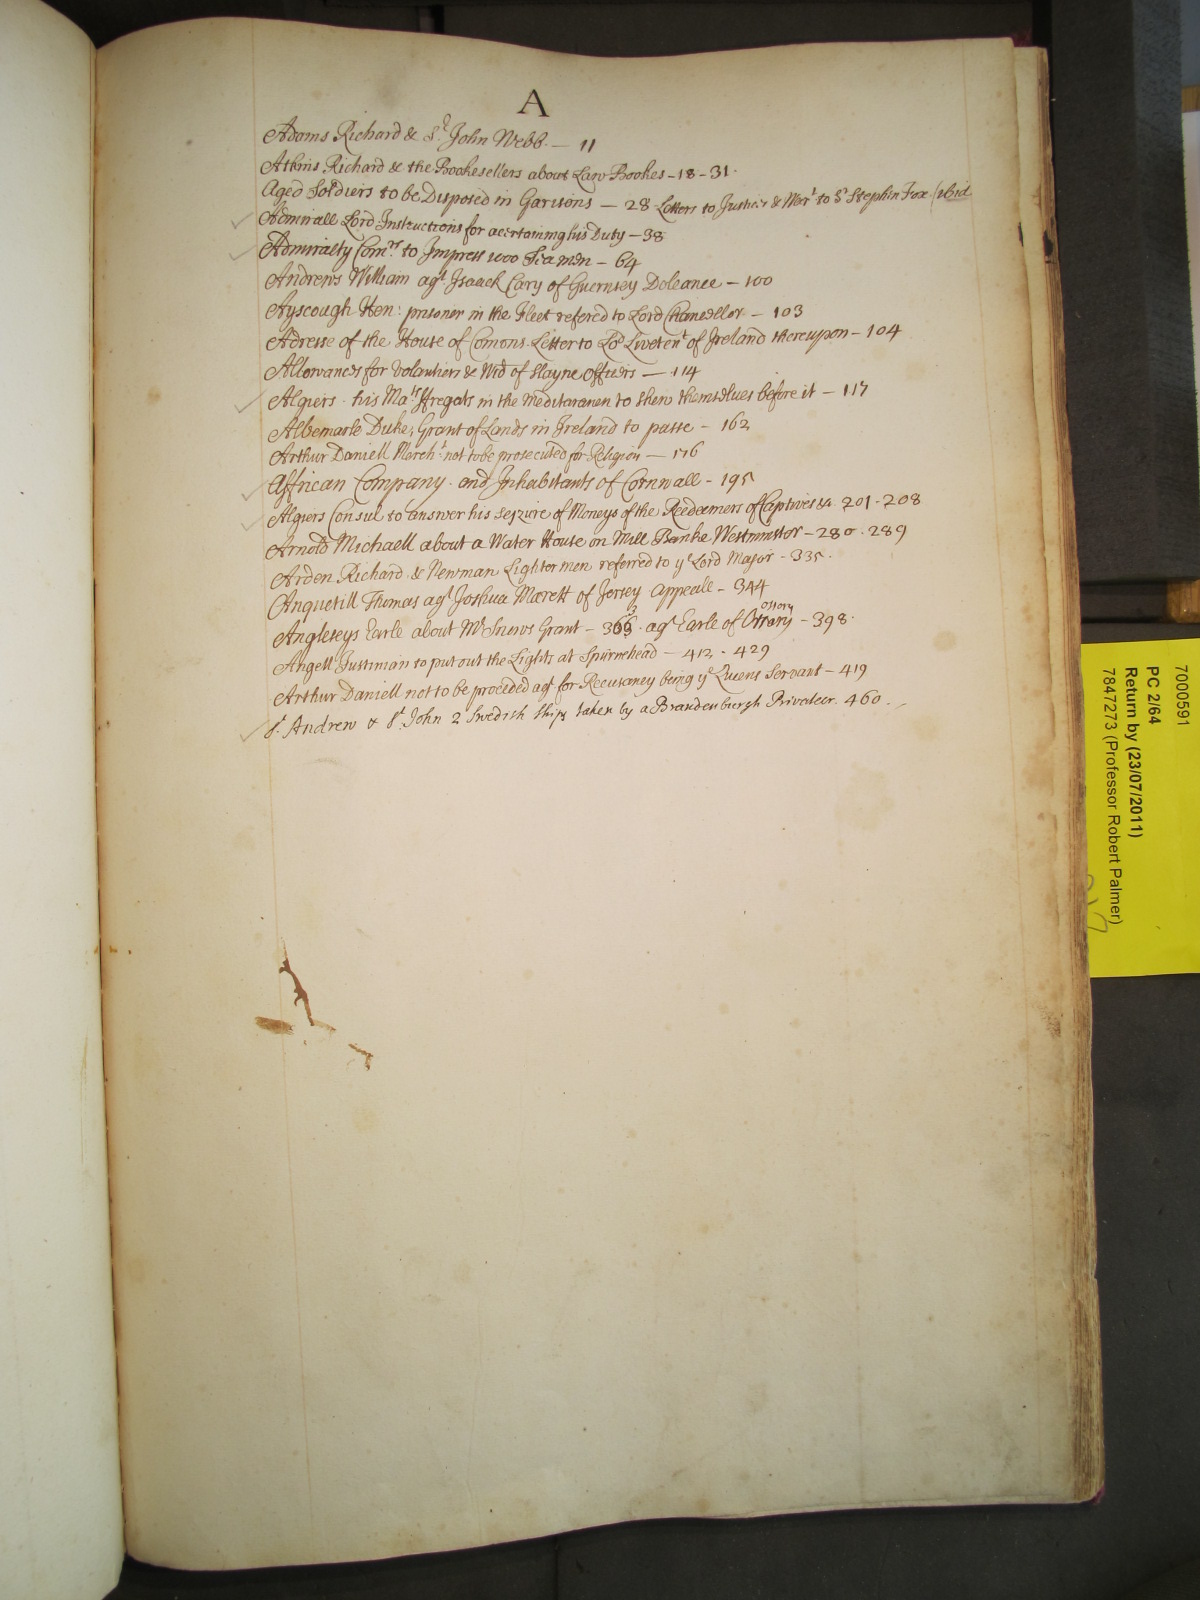 A
Adams Richard & Sr. John Webb. — 11
Atkins Richard & the Bookesellers about Law Bookes - 18 - 31.
Aged Soldiers to be Disposed in Garisons — 28 Letters to Justices & Mar.t to Sr Stephen Fox (ibid
Admirall Lord Instructions for ascertaining his Duty - 38
Admiralty Com.rs to Impress 1000 Seamen - 64
Andrews William ag.t Isaack Cary of Guernsey Doleance - 100
Ayscough Hen: prisoner in the Fleet refered to Lord Chancellor - 103
Adresse of the House of Comons Letter to Lo.d Liveten.t of Ireland thereupon - 104
Allowances for Volontiers & Wid of Slayne Officers — 114
Algiers his Ma.ts ffregats in the Mediteranen to shew themselves before it - 117
Albemarle Duke, Grant of Lands in Ireland to passe - 162
Arthur Daniell March.t not to be prosecuted for Religion — 176
Affrican Company and Inhabitants of Cornwall - 195
Algiers Consul to answer his seizure of Moneys of the Redeemers of Captives &c. 201 - 208
Arnold Michaell about a Water House on Mill Banke Westminster - 280 . 289
Arden Richard & Newman Lightermen referred to ye Lord Mayor - 335.
Anquetill Thomas ag.t Joshua Marett of Jersey Appeale - 344
Angleseys Earle about Mr Snows Grant - 363 . ag.t Earle of Ossory - 398.
Angell Justinian to put out the Lights at Spurnehead - 412 - 429
Arthur Daniell not to be proceded ag.t for Recusancy being ye Queens Servant - 419
S.t Andrew & S.t John 2 Swedish Ships taken by a Brandenburgh Privateer. 460.
7000591
PC 2/64
Return by (23/07/2011)
7847273 (Professor Robert Palmer)